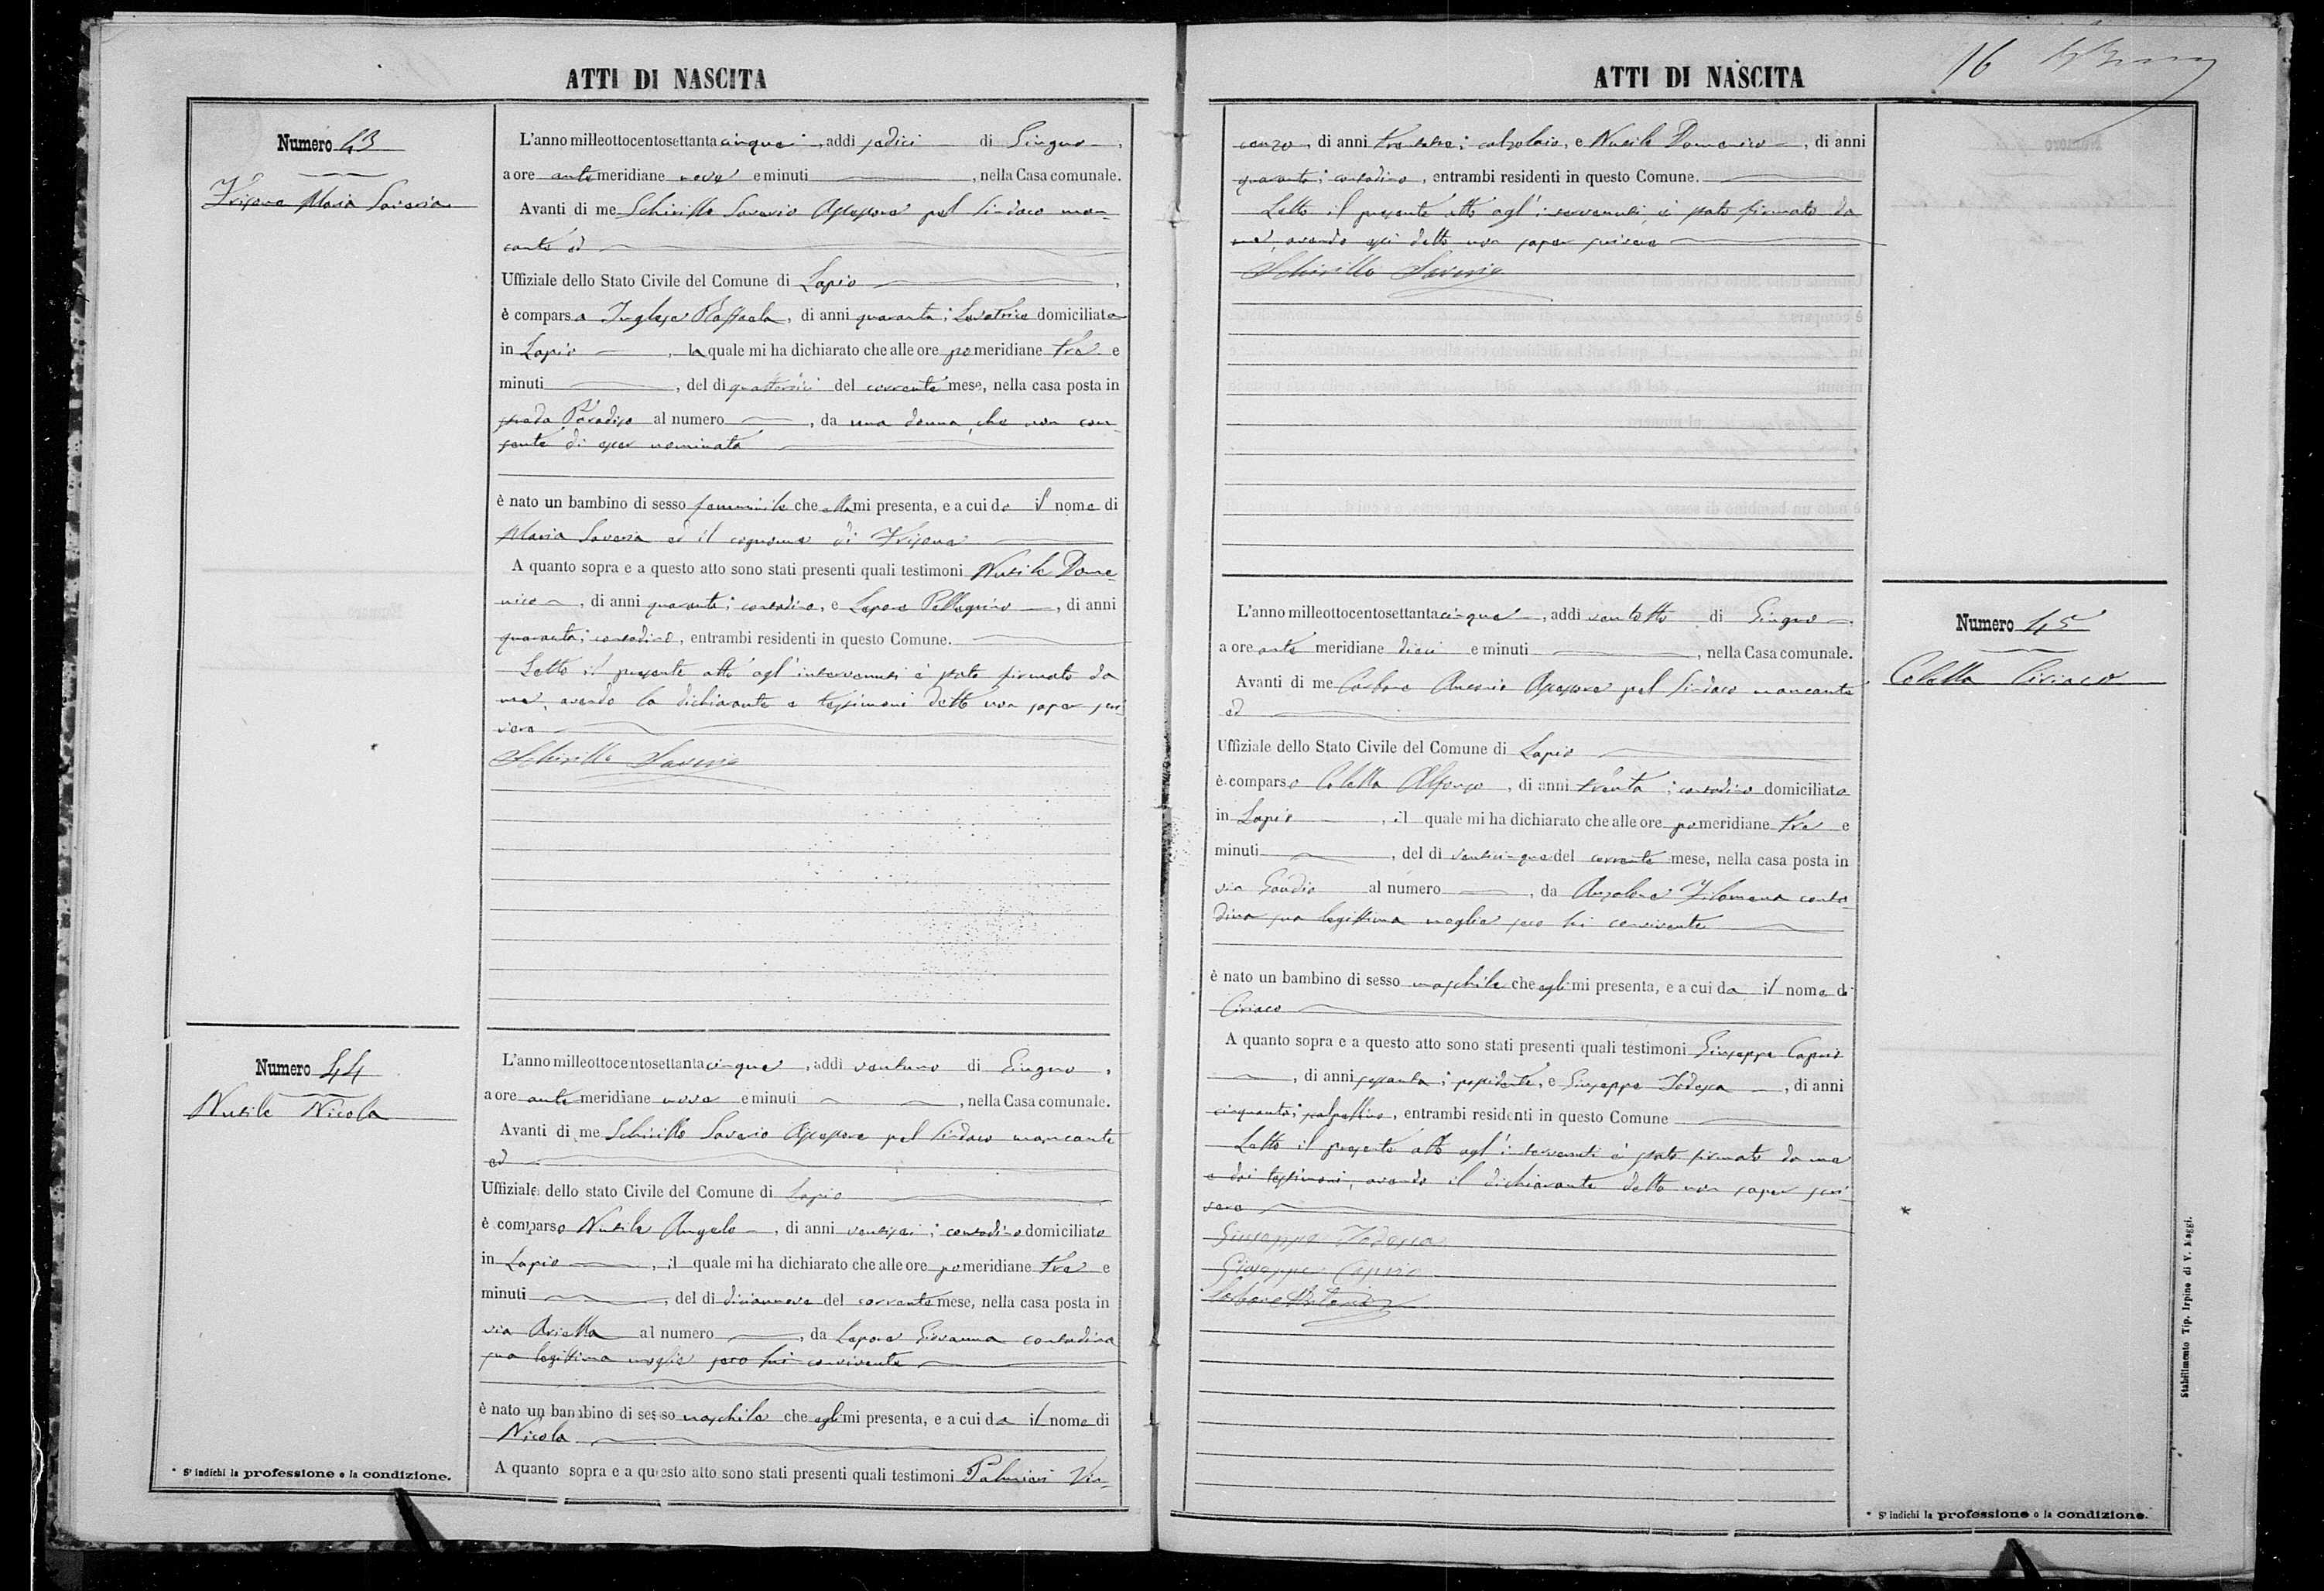 ATTI DI NASCITA
Numero 43
Frisone Maria Saveria
L'anno milleottocentosettantacinque, addì sedici di Giugno,
a ore antimeridiane nove e minuti, nella Casa comunale.
Avanti di me Schirillo Saverio Assessore pel Sindaco man-
cante ed
Uffiziale dello Stato Civile del Comune di Lapio,
è comparsa Inglese Raffaela, di anni quaranta; Levatrice domiciliata
in Lapio, la quale mi ha dichiarato che alle ore pomeridiane tre e
minuti, del dì quattordici del corrente mese, nella casa posta in
strada Paradiso al numero, da una donna che non con-
sente di esser nominata
è nato un bambino di sesso femminile che ella mi presenta, e a cui dò il nome di
Maria Saveria ed il cognome di Frisone
A quanto sopra e a questo atto sono stati presenti quali testimoni Nutile Dome-
nico, di anni quaranta; contadino, e Lepore Pellegrino, di anni
quaranta; contadino, entrambi residenti in questo Comune.
Letto il presente atto agl'intervenuti è stato firmato da
me, avendo la dichiarante e testimoni detto non saper scri-
vere
Schirillo Saverio
Numero 44
Nutile Nicola
L'anno milleottocentosettantacinque, addì ventuno di Giugno,
a ore antimeridiane nove e minuti, nella Casa comunale.
Avanti di me Schirillo Saverio Assessore pel Sindaco mancante
ed
Uffiziale dello stato Civile del Comune di Lapio
è comparso Nutile Angelo, di anni ventisei; contadino domiciliato
in Lapio, il quale mi ha dichiarato che alle ore pomeridiane tre e
minuti, del dì diciannove del corrente mese, nella casa posta in
via Arietta al numero, da Lepore Giovanna contadina
sua legittima moglie seco lui convivente
è nato un bambino di sesso maschile che egli mi presenta, e a cui da il nome di
Nicola
A quanto sopra e a questo atto sono stati presenti quali testimoni Palmieri Vin-
* S' indichi la professione o la condizione.
ATTI DI NASCITA
16
cenzo, di anni trentatre; calzolaio, e Nutile Domenico, di anni
quaranta; contadino, entrambi residenti in questo Comune.
Letto il presente atto agl'intervenuti, è stato firmato da
me, avendo essi detto non saper scrivere
Schirillo Saverio
Numero 45
Coletta Ciriaco
L'anno milleottocentosettantacinque, addì ventotto di Giugno
a ore antemeridiane dieci e minuti, nella Casa comunale.
Avanti di me Carbone Antonio Assessore pel Sindaco mancante
ed
Uffiziale dello Stato Civile del Comune di Lapio
è comparso Coletta Alfonso, di anni trenta; contadino domiciliato
in Lapio, il quale mi ha dichiarato che alle ore pomeridiane tre e
minuti, del dì venticinque del corrente mese, nella casa posta in
via Gaudio al numero, da Anzalone Filomena conta-
dina sua legittima moglie seco lui convivente
è nato un bambino di sesso maschile che egli mi presenta, e a cui da il nome di
Ciriaco
A quanto sopra e a questo atto sono stati presenti quali testimoni Giuseppe Caprio
, di anni sessanta; possidente, e Giuseppe Todesca, di anni
cinquanta;, entrambi residenti in questo Comune
Letto il presente atto agl'intervenuti è stato firmato da me
e dai testimoni, avendo il dichiarante detto non saper scri-
vere
Giuseppe Todesca
Giuseppe Caprio
Carbone Antonio
* S' indichi la professione o la condizione.
Stabilimento Tip. Irpino di V. Maggi.